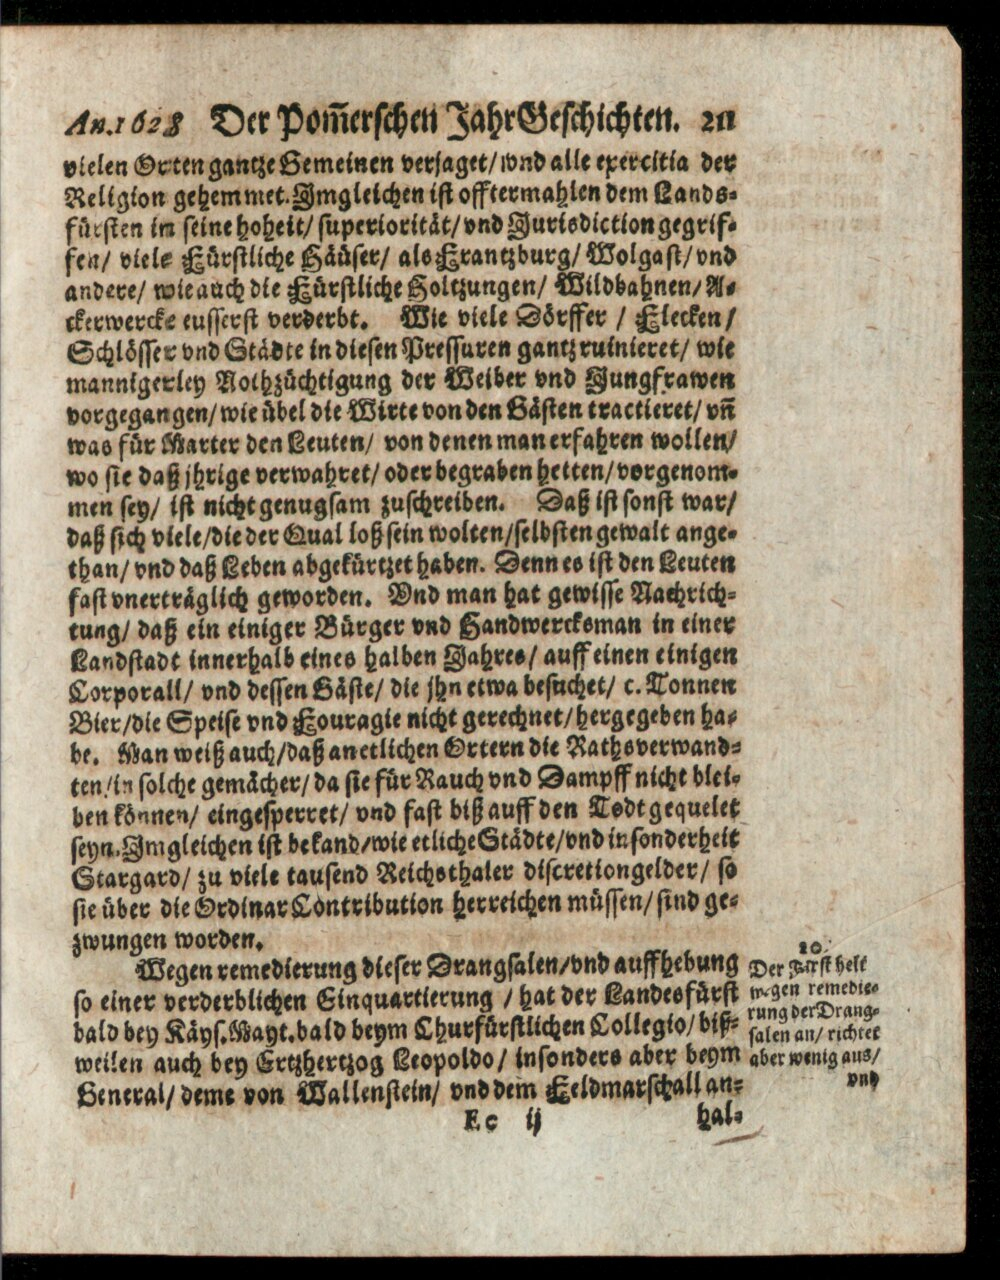 An. 1628 Der Pom̃erschen JahrGeschichten. 211
vielen Orten gantze Gemeinen verjaget/ vnd alle exercitia der
Religion gehemmet. Imgleichen ist offtermahlen dem Lands-
fürsten in seine hoheit/ superiorität/ vnd Jurisdiction gegrif-
fen/ viele Fürstliche Häüser/ als Frantzburg/ Wolgast/ vnd
andere/ wie auch die Fürstliche Holtzungen/ Wildbahnen/ A-
ckerwercke eusserst verderbt. Wie viele Dörffer / Flecken/
Schlösser vnd Städte in diesen Pressuren gantz ruinieret/ wie
mannigerley Nothzüchtigung der Weiber vnd Jungfrawen
vorgegangen/ wie übel die Wirte von den Gästen tractieret/ vñ
was für Marter den Leuten/ von denen man erfahren wollen/
wo sie daß jhrige verwahret/ oder begraben hetten/ vorgenom-
men sey/ ist nicht genugsam zuschreiben. Daß ist sonst war/
daß sich viele/ die der Qual loß sein wolten/ selbsten gewalt ange-
than/ vnd daß Leben abgekürtzet haben. Denn es ist den Leuten
fast vnerträglich geworden. Vnd man hat gewisse Nachrich-
tung/ daß ein einiger Bürger vnd Handwercksman in einer
Landstadt innerhalb eines halben Jahres/ auff einen einigen
Corporall/ vnd dessen Gäste/ die jhn etwa besuchet/ c. Tonnen
Bier/ die Speise vnd Fouragie nicht gerechnet/ hergegeben ha-
be. Man weiß auch/ daß an etlichen Ortern die Rathsverwand-
ten/ in solche gemächer/ da sie für Rauch vnd Dampff nicht blei-
ben können/ eingesperret/ vnd fast biß auff den Todt gequelet
seyn. Imgleichen ist bekand/ wie etliche Städte/ vnd insonderheit
Stargard/ zu viele tausend Reichsthaler discretiongelder/ so
sie über die Ordinar Contribution herreichen müssen/ sind ge-
zwungen worden.
Wegen remedierung dieser Drangsalen/ vnd auffhebung
so einer verderblichen Einquartierung / hat der Landesfürst
bald bey Käys. Mayt. bald beym Churfürstlichen Collegio/ biß-
weilen auch bey Ertzhertzog Leopoldo/ insonders aber beym
General/ deme von Wallenstein/ vnd dem Feldmarschall an-
Ee ij hal-
20.
Der Fürst helt
wegen remedie-
rung der Drang-
salen an/ richtet
aber wenig aus/
vnd